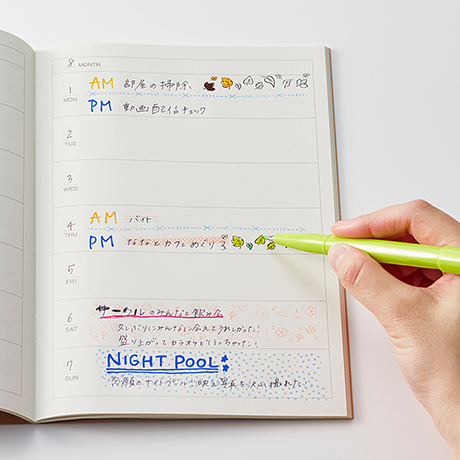 8 MONTH
1 MON
AM 部屋の掃除、
PM 動画配信チェック
2 TUE
3 WED
4 THU
AM バイト
PM ななとカフェめぐり
5 FRI
6 SAT
サークルのみんなと飲み会
久しぶりにみんなに会えてうれしかった!
盛り上がってカラオケも行っちゃった!
7 SUN
NIGHT POOL
のナイトプール!映え写真を沢山撮れた!